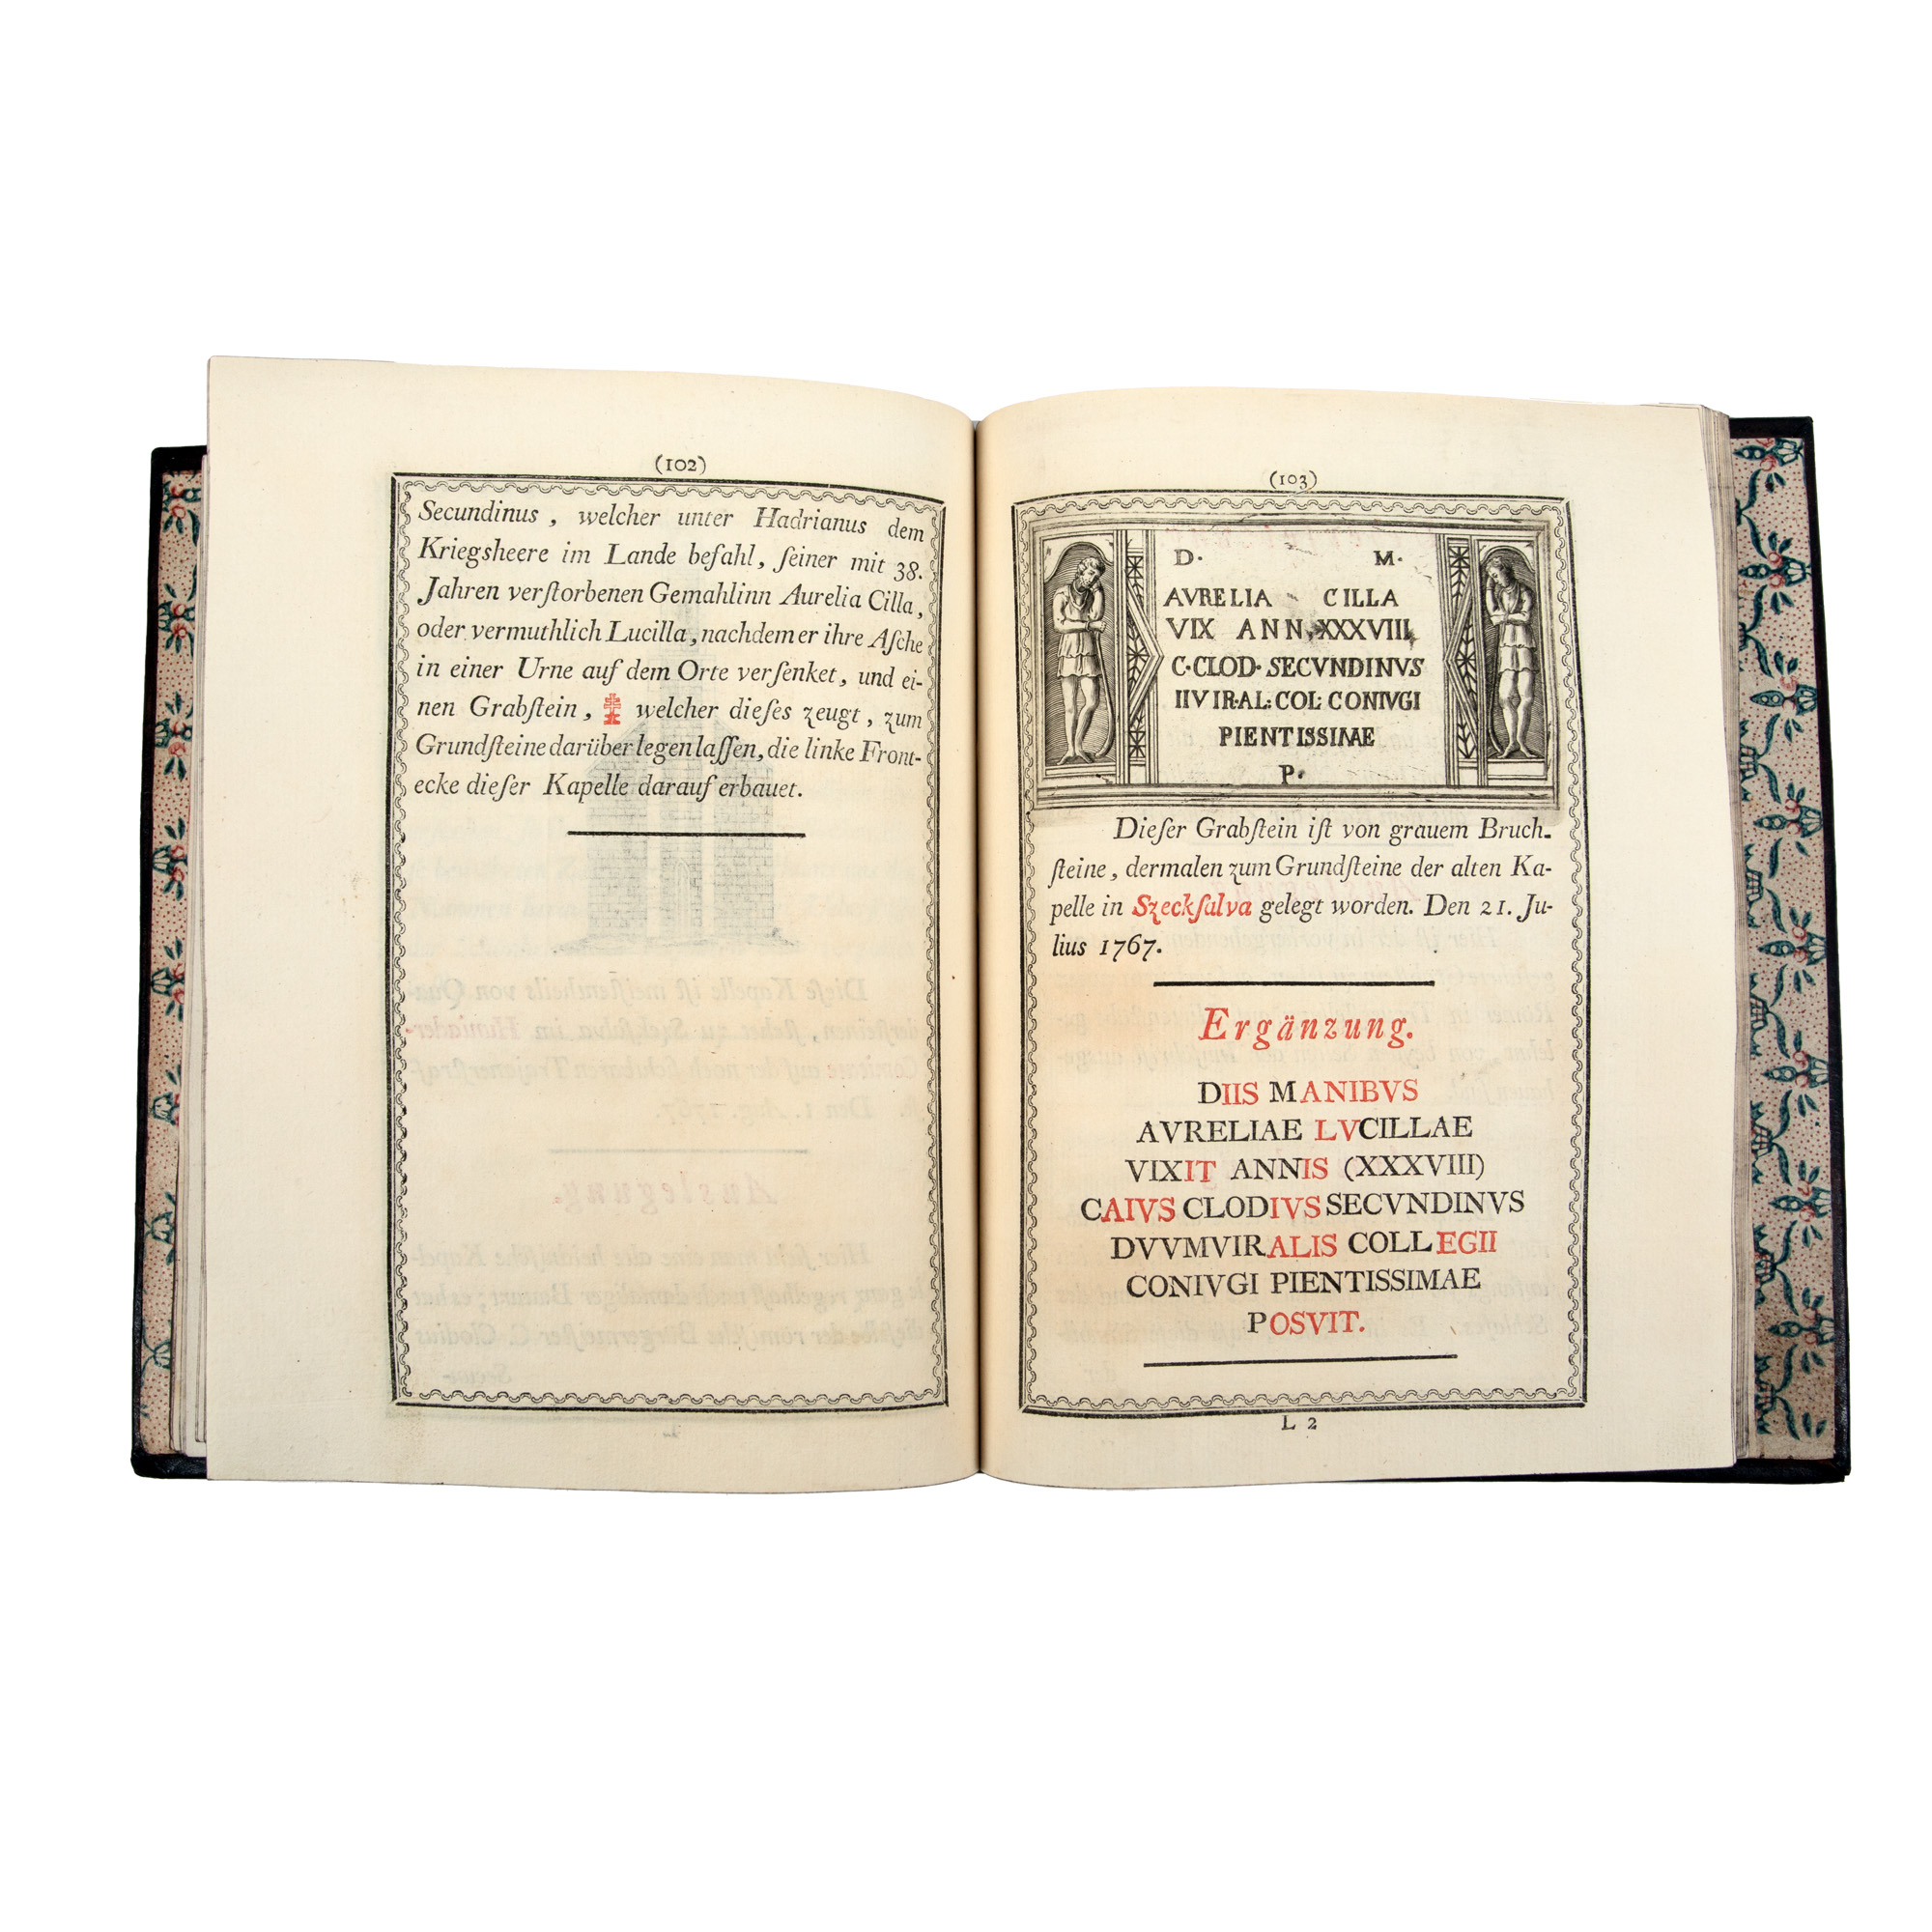 (102)
Secundinus, welcher unter Hadrianus dem
Kriegsheere im Lande befahl, ſeiner mit 38.
Jahren verſtorbenen Gemahlinn Aurelia Cilla,
oder vermuthlich Lucilla, nachdem er ihre Aſche
in einer Urne auf dem Orte verſenket, und ei-
nen Grabſtein, welcher dieſes zeugt, zum
Grundſteine darüber legen laſſen, die linke Front-
ecke dieſer Kapelle darauf erbauet.
(103)
D. M.
AVRELIA CILLA
VIX ANN XXXVIII
C·CLOD· SECVNDINVS
IIVIRAL: COL: CONIVGI
PIENTISSIMAE
P·
Dieſer Grabſtein iſt von grauem Bruch-
ſteine, dermalen zum Grundſteine der alten Ka-
pelle in Szeckſalva gelegt worden. Den 21. Ju-
lius 1767.
Ergänzung.
DIIS MANIBVS
AVRELIAE LVCILLAE
VIXIT ANNIS (XXXVIII)
CAIVS CLODIVS SECVNDINVS
DVVMVIRALIS COLLEGII
CONIVGI PIENTISSIMAE
POSVIT.
L 2